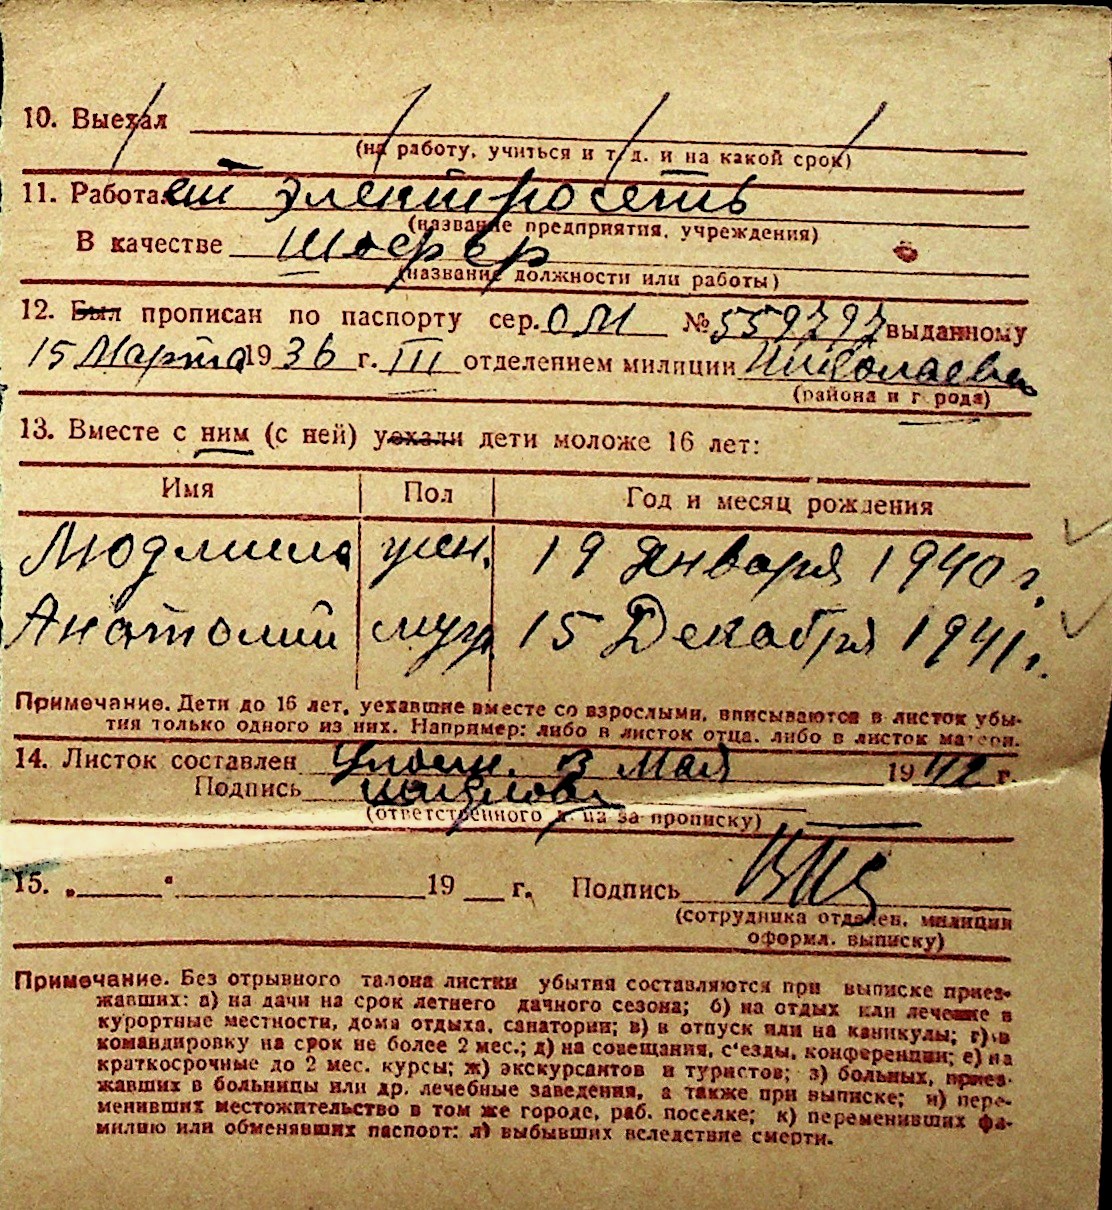 10. Выехал
(на работу, учиться и т. д. и на какой срок)
11. Работает электросеть
(название предприятия, учреждения)
В качестве шофер
(название должности или работы)
12. Был прописан по паспорту сер. ОМ № 559797 выданному
15 Марта 1936 г. III отделением милиции Николаева
(района и города)
13. Вместе с ним (с ней) уехали дети моложе 16 лет:
Имя Пол Год и месяц рождения
Людмила жен. 19 Января 1940 г.
Анатолий муж. 15 Декабря 1941 г.
Примечание. Дети до 16 лет, уехавшие вместе со взрослыми, вписываются в листок убы-
тия только одного из них. Например: либо в листок отца, либо в листок матери.
14. Листок составлен 3 Мая 1942 г.
Подпись
(ответственного л. на за прописку)
15. „ “ 19 г. Подпись
(сотрудника отделен. милиции
оформл. выписку)
Примечание. Без отрывного талона листки убытия составляются при выписке приез-
жавших: а) на дачи на срок летнего дачного сезона; б) на отдых или лечение в
курортные местности, дома отдыха, санатории; в) в отпуск или на каникулы; г) в
командировку на срок не более 2 мес.; д) на совещания, с'езды, конференции; е) на
краткосрочные до 2 мес. курсы; ж) экскурсантов и туристов; з) больных, приез-
жавших в больницы или др. лечебные заведения, а также при выписке; и) пере-
менивших местожительство в том же городе, раб. поселке; к) переменивших фа-
милию или обменявших паспорт: л) выбывших вследствие смерти.